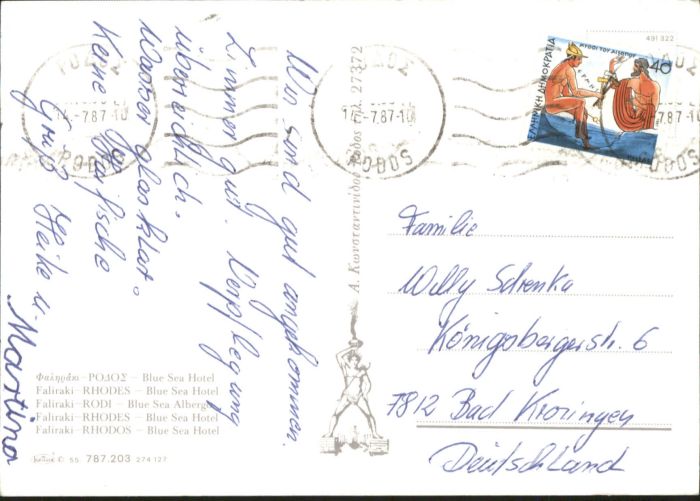 Wir sind gut angekommen.
Zimmer gut. Verpflegung
überreichlich.
Wasser glasklar.
Keine Haifische
Gruß Heike u.
Martina
Familie
Willy Schenka
Königsbergerstr. 6
7812 Bad Krozingen
Deutschland
491 322
ΜΥΘΟΙ ΤΟΥ ΑΙΣΩΠΟΥ
40
ΕΛΛΗΝΙΚΗ ΔΗΜΟΚΡΑΤΙΑ
ΡΟΔΟΣ
14.-7.87-10
ΡΟΔΟΣ
14.-7.87-10
ΡΟΔΟΣ
Α. Κωνσταντινίδου Ρόδος Τηλ. 27372
Φαληράκι-ΡΟΔΟΣ - Blue Sea Hotel
Faliraki-RHODES - Blue Sea Hotel
Faliraki-RODI - Blue Sea Albergo
Faliraki-RHODES - Blue Sea Hotel
Faliraki-RHODOS - Blue Sea Hotel
© 55 787.203 274 127